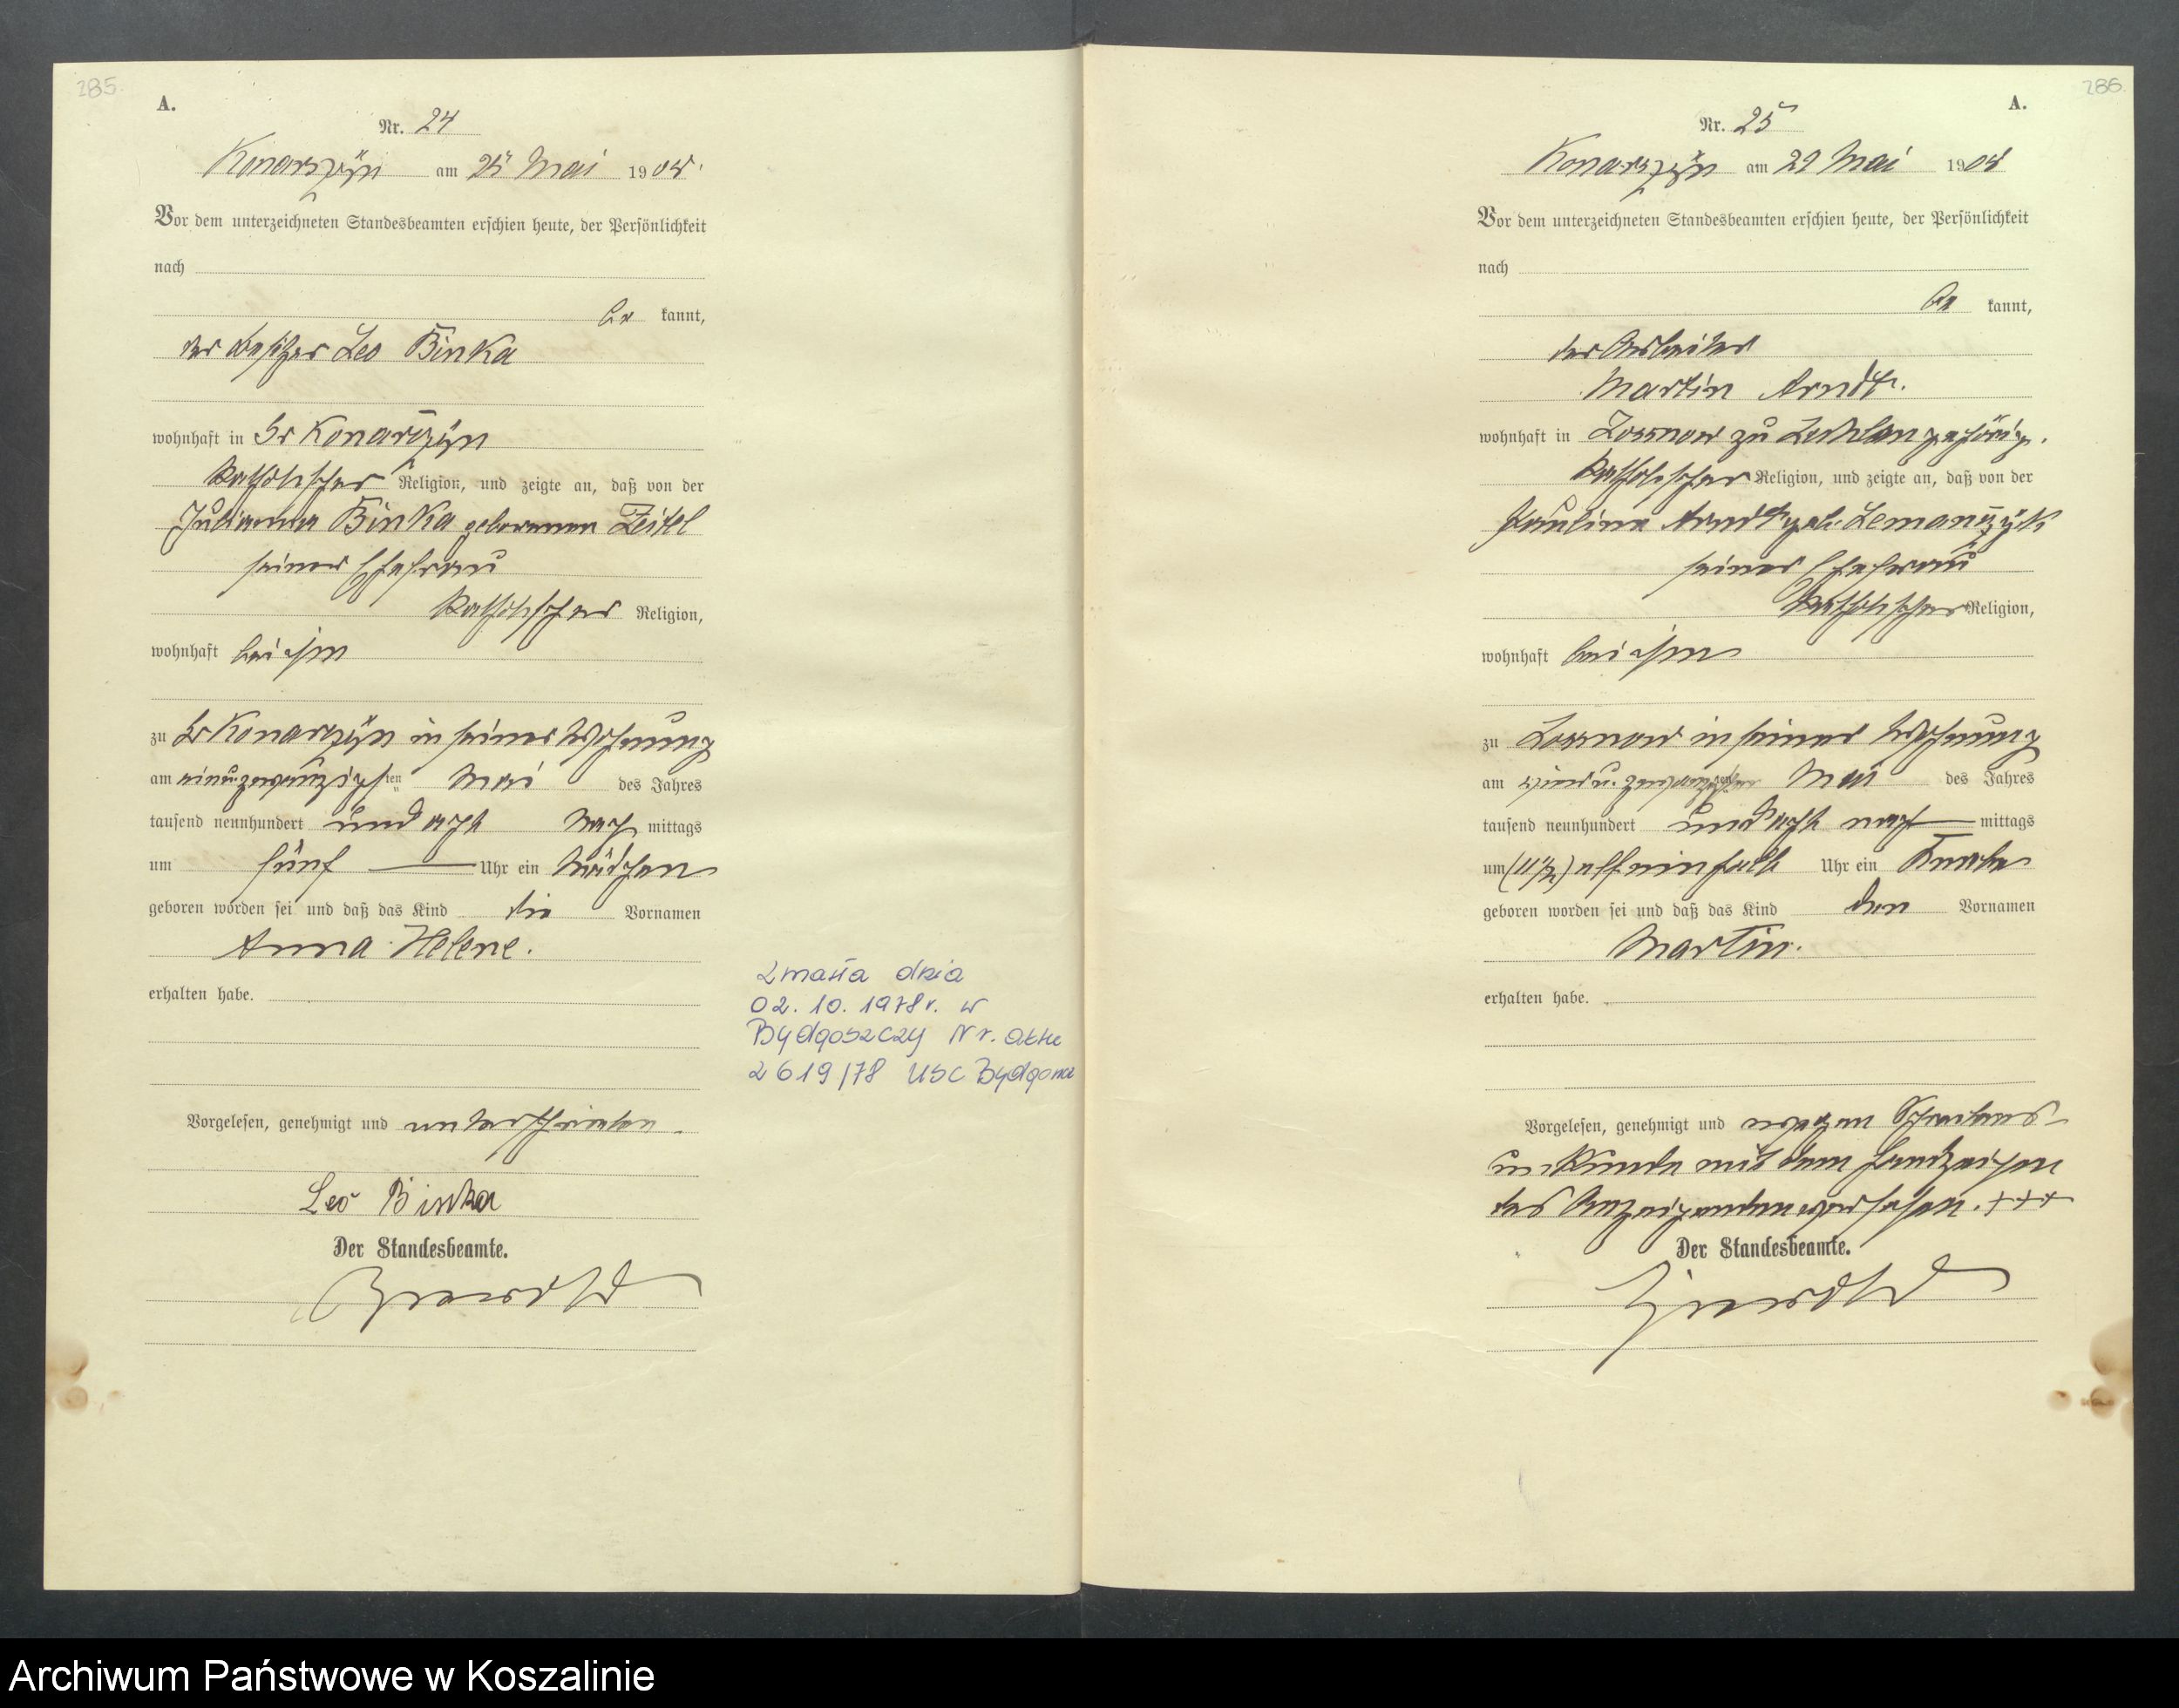 285.
A.
Nr. 24
Konarzÿn am 25 Mai 1908.
Vor dem unterzeichneten Standesbeamten erschien heute, der Persönlichkeit
nach
be kannt,
der Besitzer Leo Binka
wohnhaft in Gr Konarzÿn
katholischer Religion, und zeigte an, daß von der
Julianna Binka geborenen Zeitel
seiner Ehefrau
katholischer Religion,
wohnhaft bei ihm
zu Gr Konarzÿn in seiner Wohnung
am einu.zwanzigsten Mai des Jahres
tausend neunhundert und acht Nach mittags
um fünf Uhr ein Mädchen
geboren worden sei und daß das Kind die Vornamen
Anna Helene.
erhalten habe.
Zmarła dnia
02.10.1978 r. w
Bydgoszczy Nr. aktu
2619/78 USC Bydgoszcz
Vorgelesen, genehmigt und unterschrieben.
Leo Binka
Der Standesbeamte.
286.
A.
Nr. 25
Konarzÿn am 29 Mai 1908
Vor dem unterzeichneten Standesbeamten erschien heute, der Persönlichkeit
nach
be kannt,
der Arbeiter
Martin Arndt.
wohnhaft in Lossnow zu gehörig.
katholischer Religion, und zeigte an, daß von der
Paulina Arndt geb. Lemanczyk
seiner Ehefrau
katholischer Religion,
wohnhaft bei ihm
zu Lossnow in seiner Wohnung
am Mai des Jahres
tausend neunhundert und acht nach mittags
um (11½) elf ein halb Uhr ein Knabe
geboren worden sei und daß das Kind den Vornamen
Martin.
erhalten habe.
Vorgelesen, genehmigt und wegen Schreibens-
unkunde mit dem Handzeichen
des Anzeigenden versehen. +++
Der Standesbeamte.
Archiwum Państwowe w Koszalinie